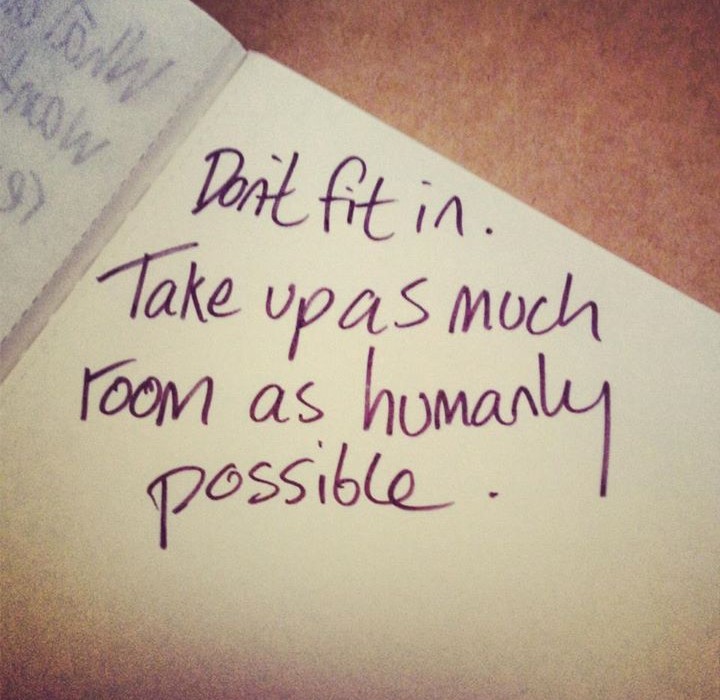 Don't fit in.
Take up as much
room as humanly
possible.